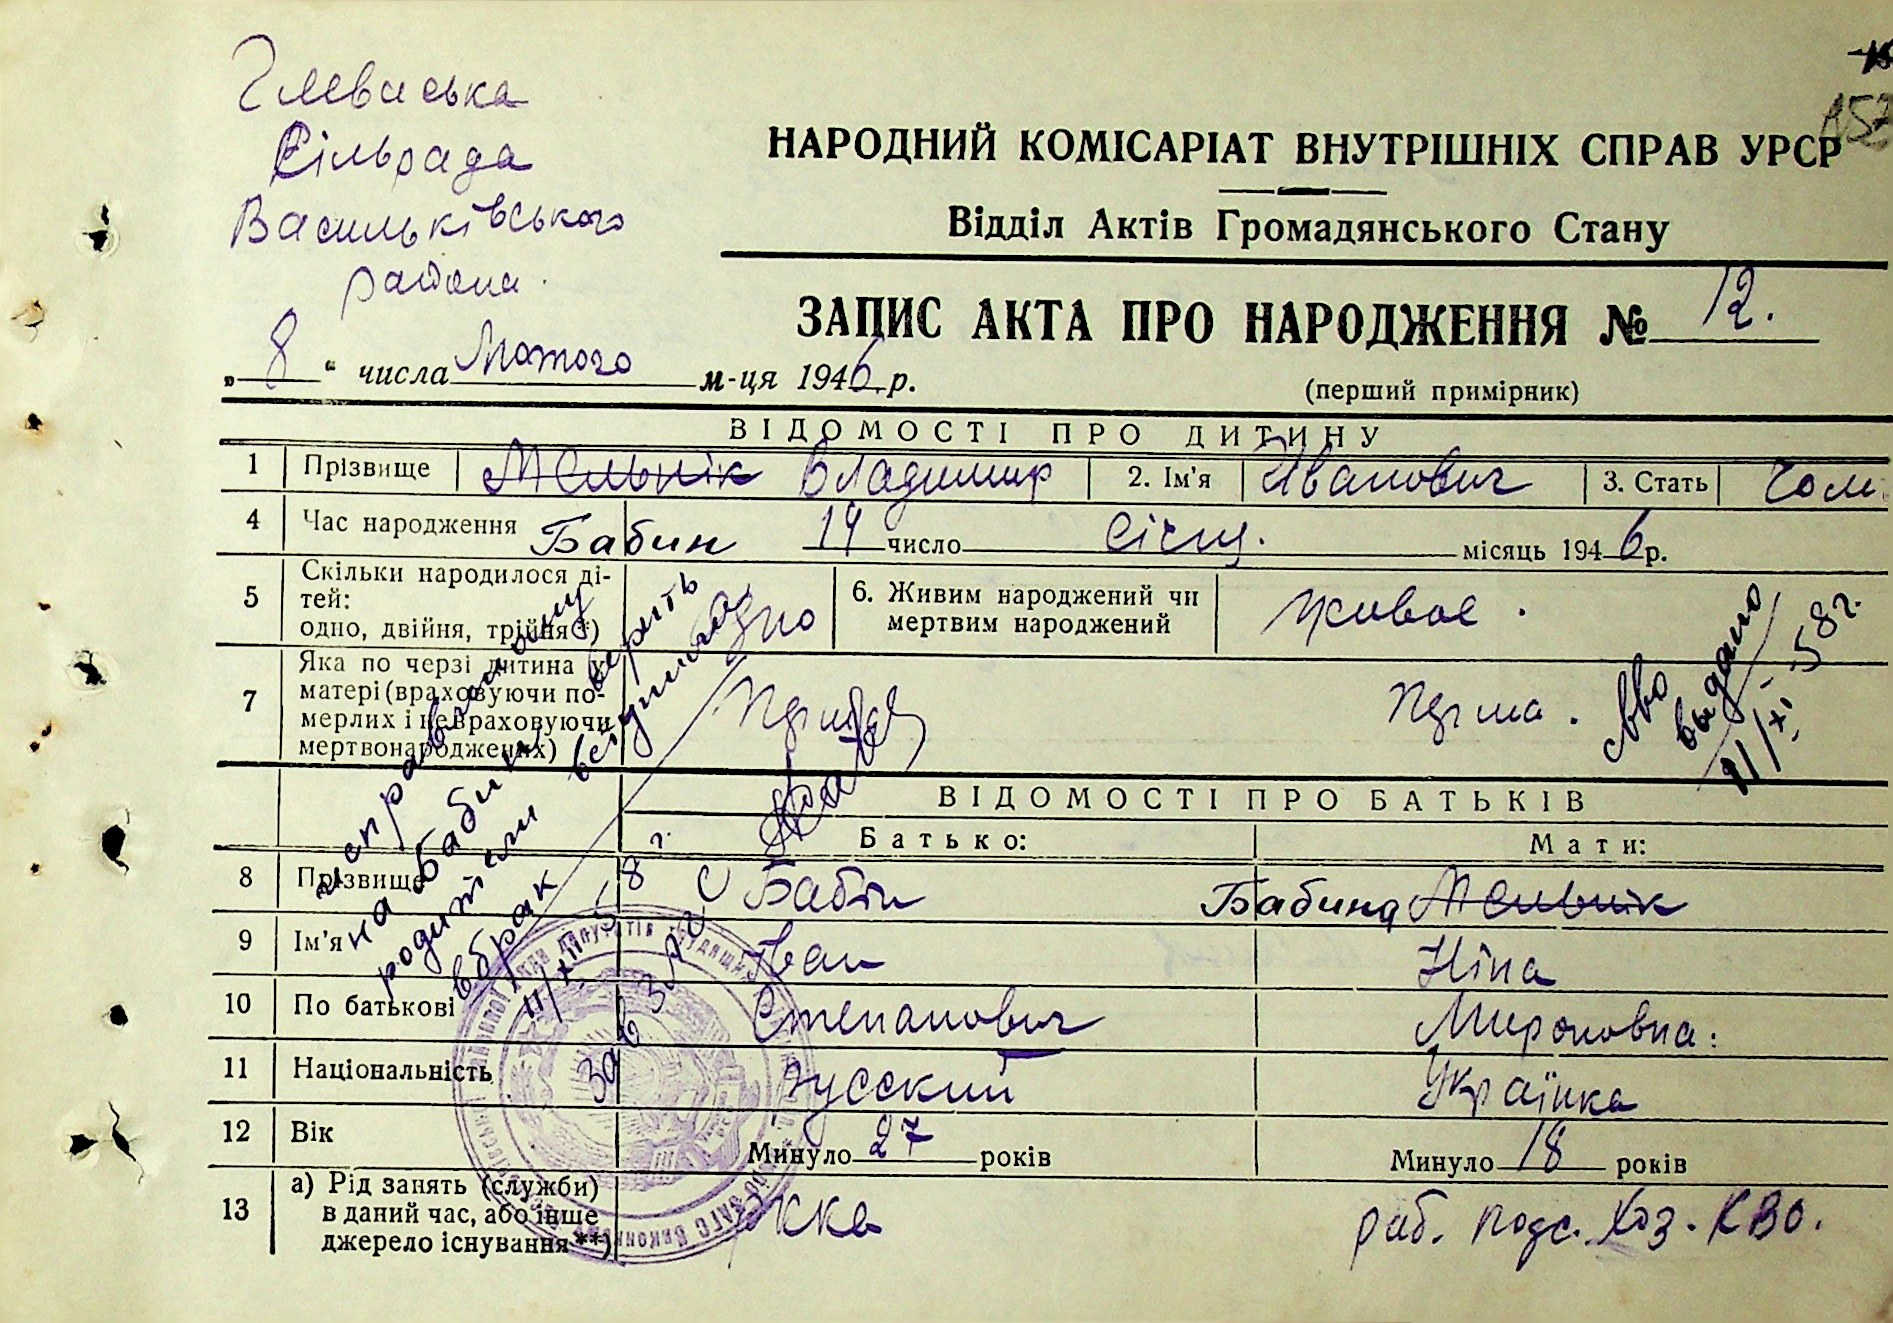 Глеваська
Сільрада
Васильківського
района.
НАРОДНИЙ КОМІСАРІАТ ВНУТРІШНІХ СПРАВ УРСР
Відділ Актів Громадянського Стану
ЗАПИС АКТА ПРО НАРОДЖЕННЯ № 12.
„ 8 “ числа Лютого м-ця 1946 р.
(перший примірник)
ВІДОМОСТІ ПРО ДИТИНУ
1 Прізвище Мельнік Владимир 2. Ім'я Иванович 3. Стать Чол.
4 Час народження Бабин 14 число Січня. місяць 1946 р.
5 Скільки народилося ді-
тей:
одно, двійня, трійня*) одно 6. Живим народжений чи
мертвим народжений живое.
7 Яка по черзі дитина у
матері (враховуючи по-
мерлих і невраховуючи
мертвонароджених) Перша.
сво
выдано
11/XI-58 г.
исправленному
на Бабин верить
родители вступили
в брак
11/XI 58 г.
Зав ЗАГС
ВІДОМОСТІ ПРО БАТЬКІВ
Батько: Мати:
8 Прізвище Бабін Бабина Мельнік
9 Ім'я Іван Ніна
10 По батькові Степанович Мироновна.
11 Національність русский Українка
12 Вік Минуло 27 років Минуло 18 років
13 а) Рід занять (служби)
в даний час, або інше
джерело існування**) РККА раб. подс. хоз. КВО.